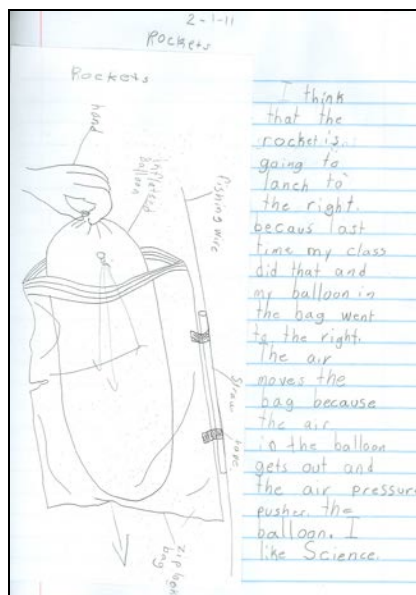 2-1-11
Rockets
Rockets
hand
inflated
balloon
fishing wire
air
straw
tape
ziplock
bag
I think
that the
rocket is
going to
lanch to
the right.
becaus last
time my class
did that and
my balloon in
the bag went
to the right.
The air
moves the
bag because
the air
in the balloon
gets out and
the air pressure
pusher the
balloon. I
like Science.